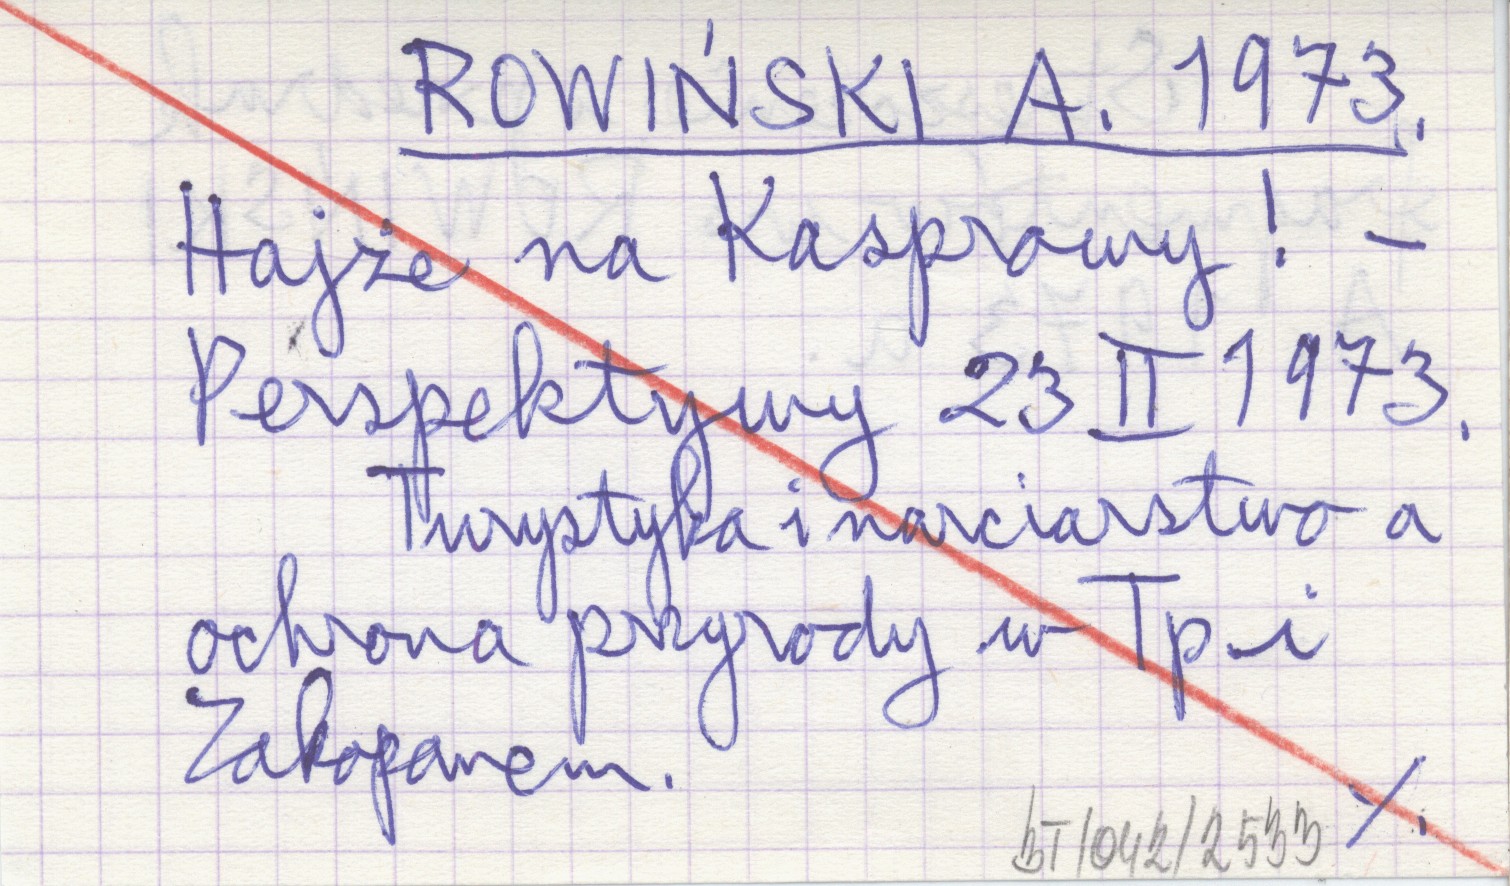 ROWIŃSKI A. 1973.
Hajże na Kasprowy! –
Perspektywy 23 II 1973.
Turystyka i narciarstwo a
ochrona przyrody w Tp i
Zakopanem.
./.
BT/042/2533